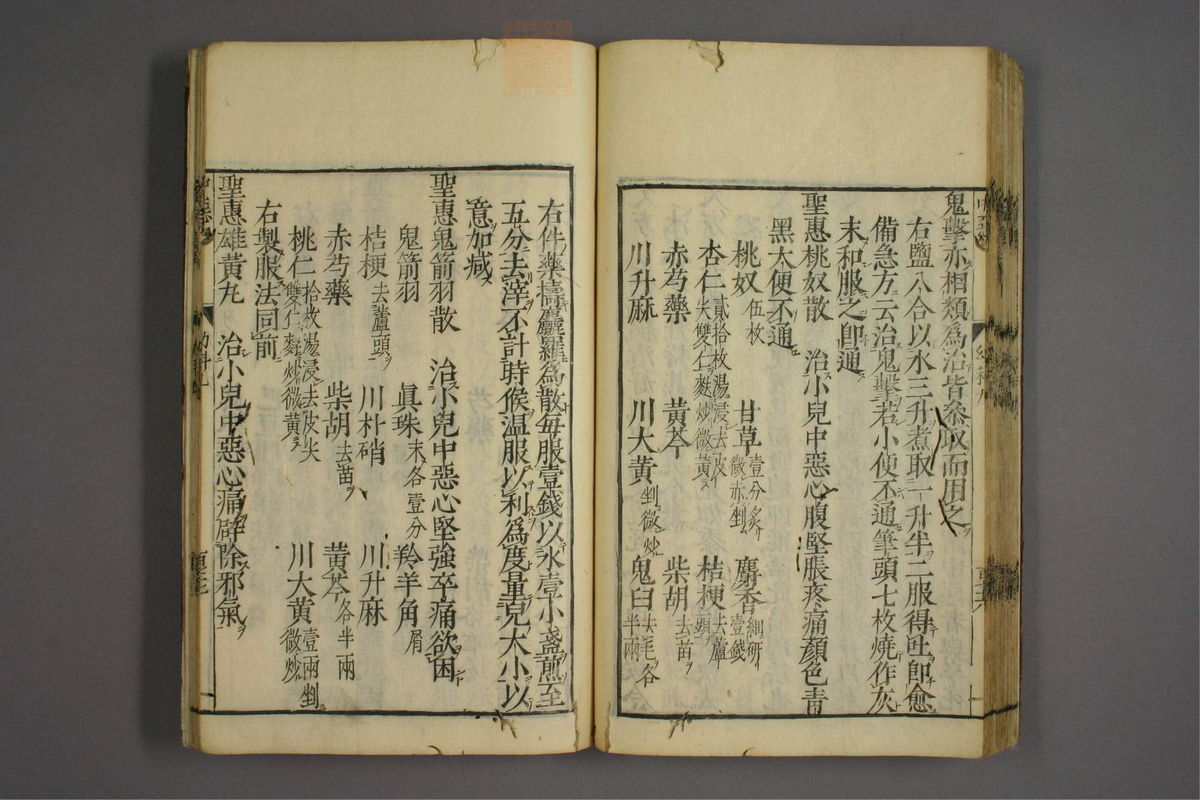 鬼擊亦相類爲治皆叅取而用之
右鹽八合以水三升煮取一升半二服得吐即愈
備急方云治鬼擊若小便不通筆頭七枚燒作灰
末和服之即通
聖惠桃奴散 治小兒中惡心腹堅脹疼痛顏色青
黑大便不通
桃奴伍枚 甘草壹分炙微赤剉 麝香細研壹錢
杏仁貳拾枚湯浸去皮尖雙仁麩炒微黃 桔梗去蘆頭
赤芍藥 黃芩 柴胡去苗
川升麻 川大黃剉微炒 鬼臼去毛各半兩
右件藥擣麤羅爲散每服壹錢以水壹小盞煎至
五分去滓不計時候溫服以利爲度量兒大小以
意加減
聖惠鬼箭羽散 治小兒中惡心堅強卒痛欲困
鬼箭羽 眞珠末各壹分 羚羊角屑
桔梗去蘆頭 川朴硝 川升麻
赤芍藥 柴胡去苗 黃芩各半兩
桃仁拾枚湯浸去皮尖雙仁麩炒微黃 川大黃壹兩剉微炒
右製服法同前
聖惠雄黃丸 治小兒中惡心痛辟除邪氣